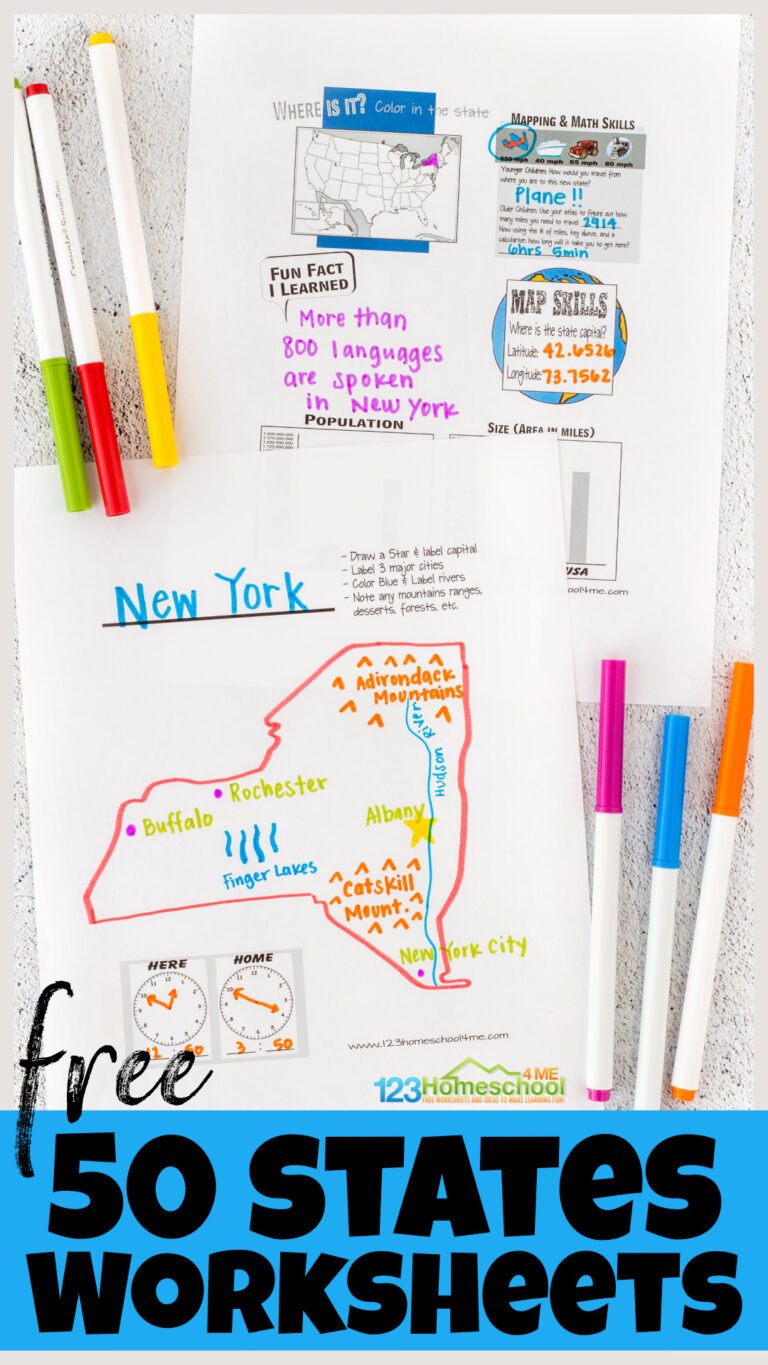 WHERE IS IT? Color in the state
MAPPING & MATH SKILLS
650 mph 40 mph 65 mph 80 mph
Younger Children: How would you travel from
where you are to this new state?
Plane!!
Older Children: Use your atlas to figure out how
many miles you need to travel 2914
Now using the # of miles, key above, and a
calculator: how long will it take you to get here?
6hrs 5min
FUN FACT
I LEARNED
More than
800 languages
are spoken
in New York
MAP SKILLS
Where is the state capital?
Latitude: 42.6526
Longitude: 73.7562
POPULATION
SIZE (AREA IN MILES)
USA
New York
- Draw a Star & label capital
- Label 3 major cities
- Color Blue & Label rivers
- Note any mountains ranges,
desserts, forests, etc.
Adirondack
Mountains
Hudson River
Rochester
Buffalo
Albany
Finger Lakes
Catskill
Mount.
New York City
HERE
12 50
HOME
3 : 50
www.123homeschool4me.com
123Homeschool 4 ME
FREE WORKSHEETS AND IDEAS TO MAKE LEARNING FUN!
free
50 STATES
WORKSHEETS